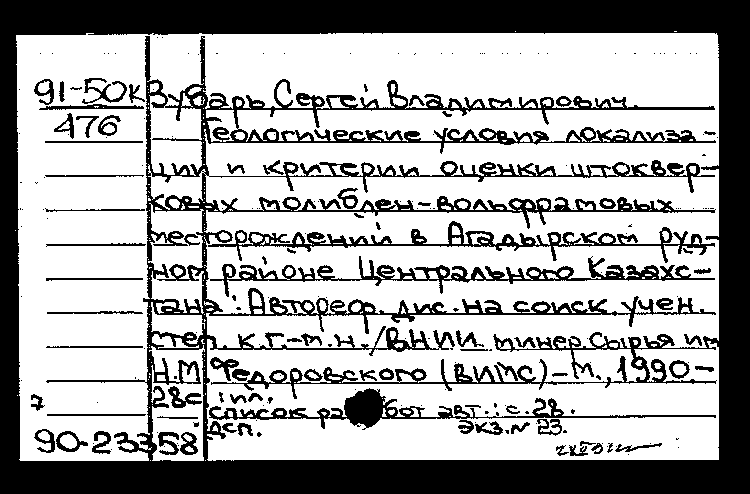 91-50К Зубарь, Сергей Владимирович.
476 Геологические условия локализа-
ции и критерии оценки штоквер-
ковых молибден-вольфрамовых
месторождений в Агадырском руд-
ном районе Центрального Казахс-
тана: Автореф. дис. на соиск. учен.
степ. к.г.-м.н./ВНИИ минер. сырья им
Н.М. Федоровского (ВИМС)-М., 1990.-
28с. : ил.
7 Список работ авт.: с. 28.
ДСП. Экз. N 23.
90-23358